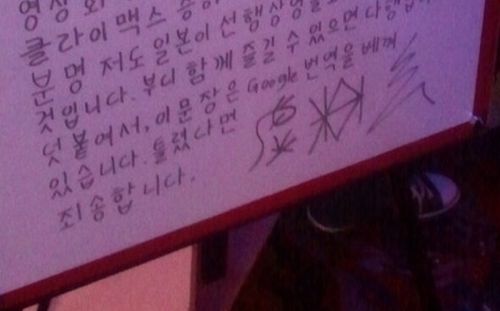 영상 회
클라이맥스
분명 저도 일본이 선행상영
것입니다. 부디 함께 즐길 수 있으면 다행입
덧붙여서, 이 문장은 Google 번역을 베껴
있습니다. 틀렸다면
죄송합니다.